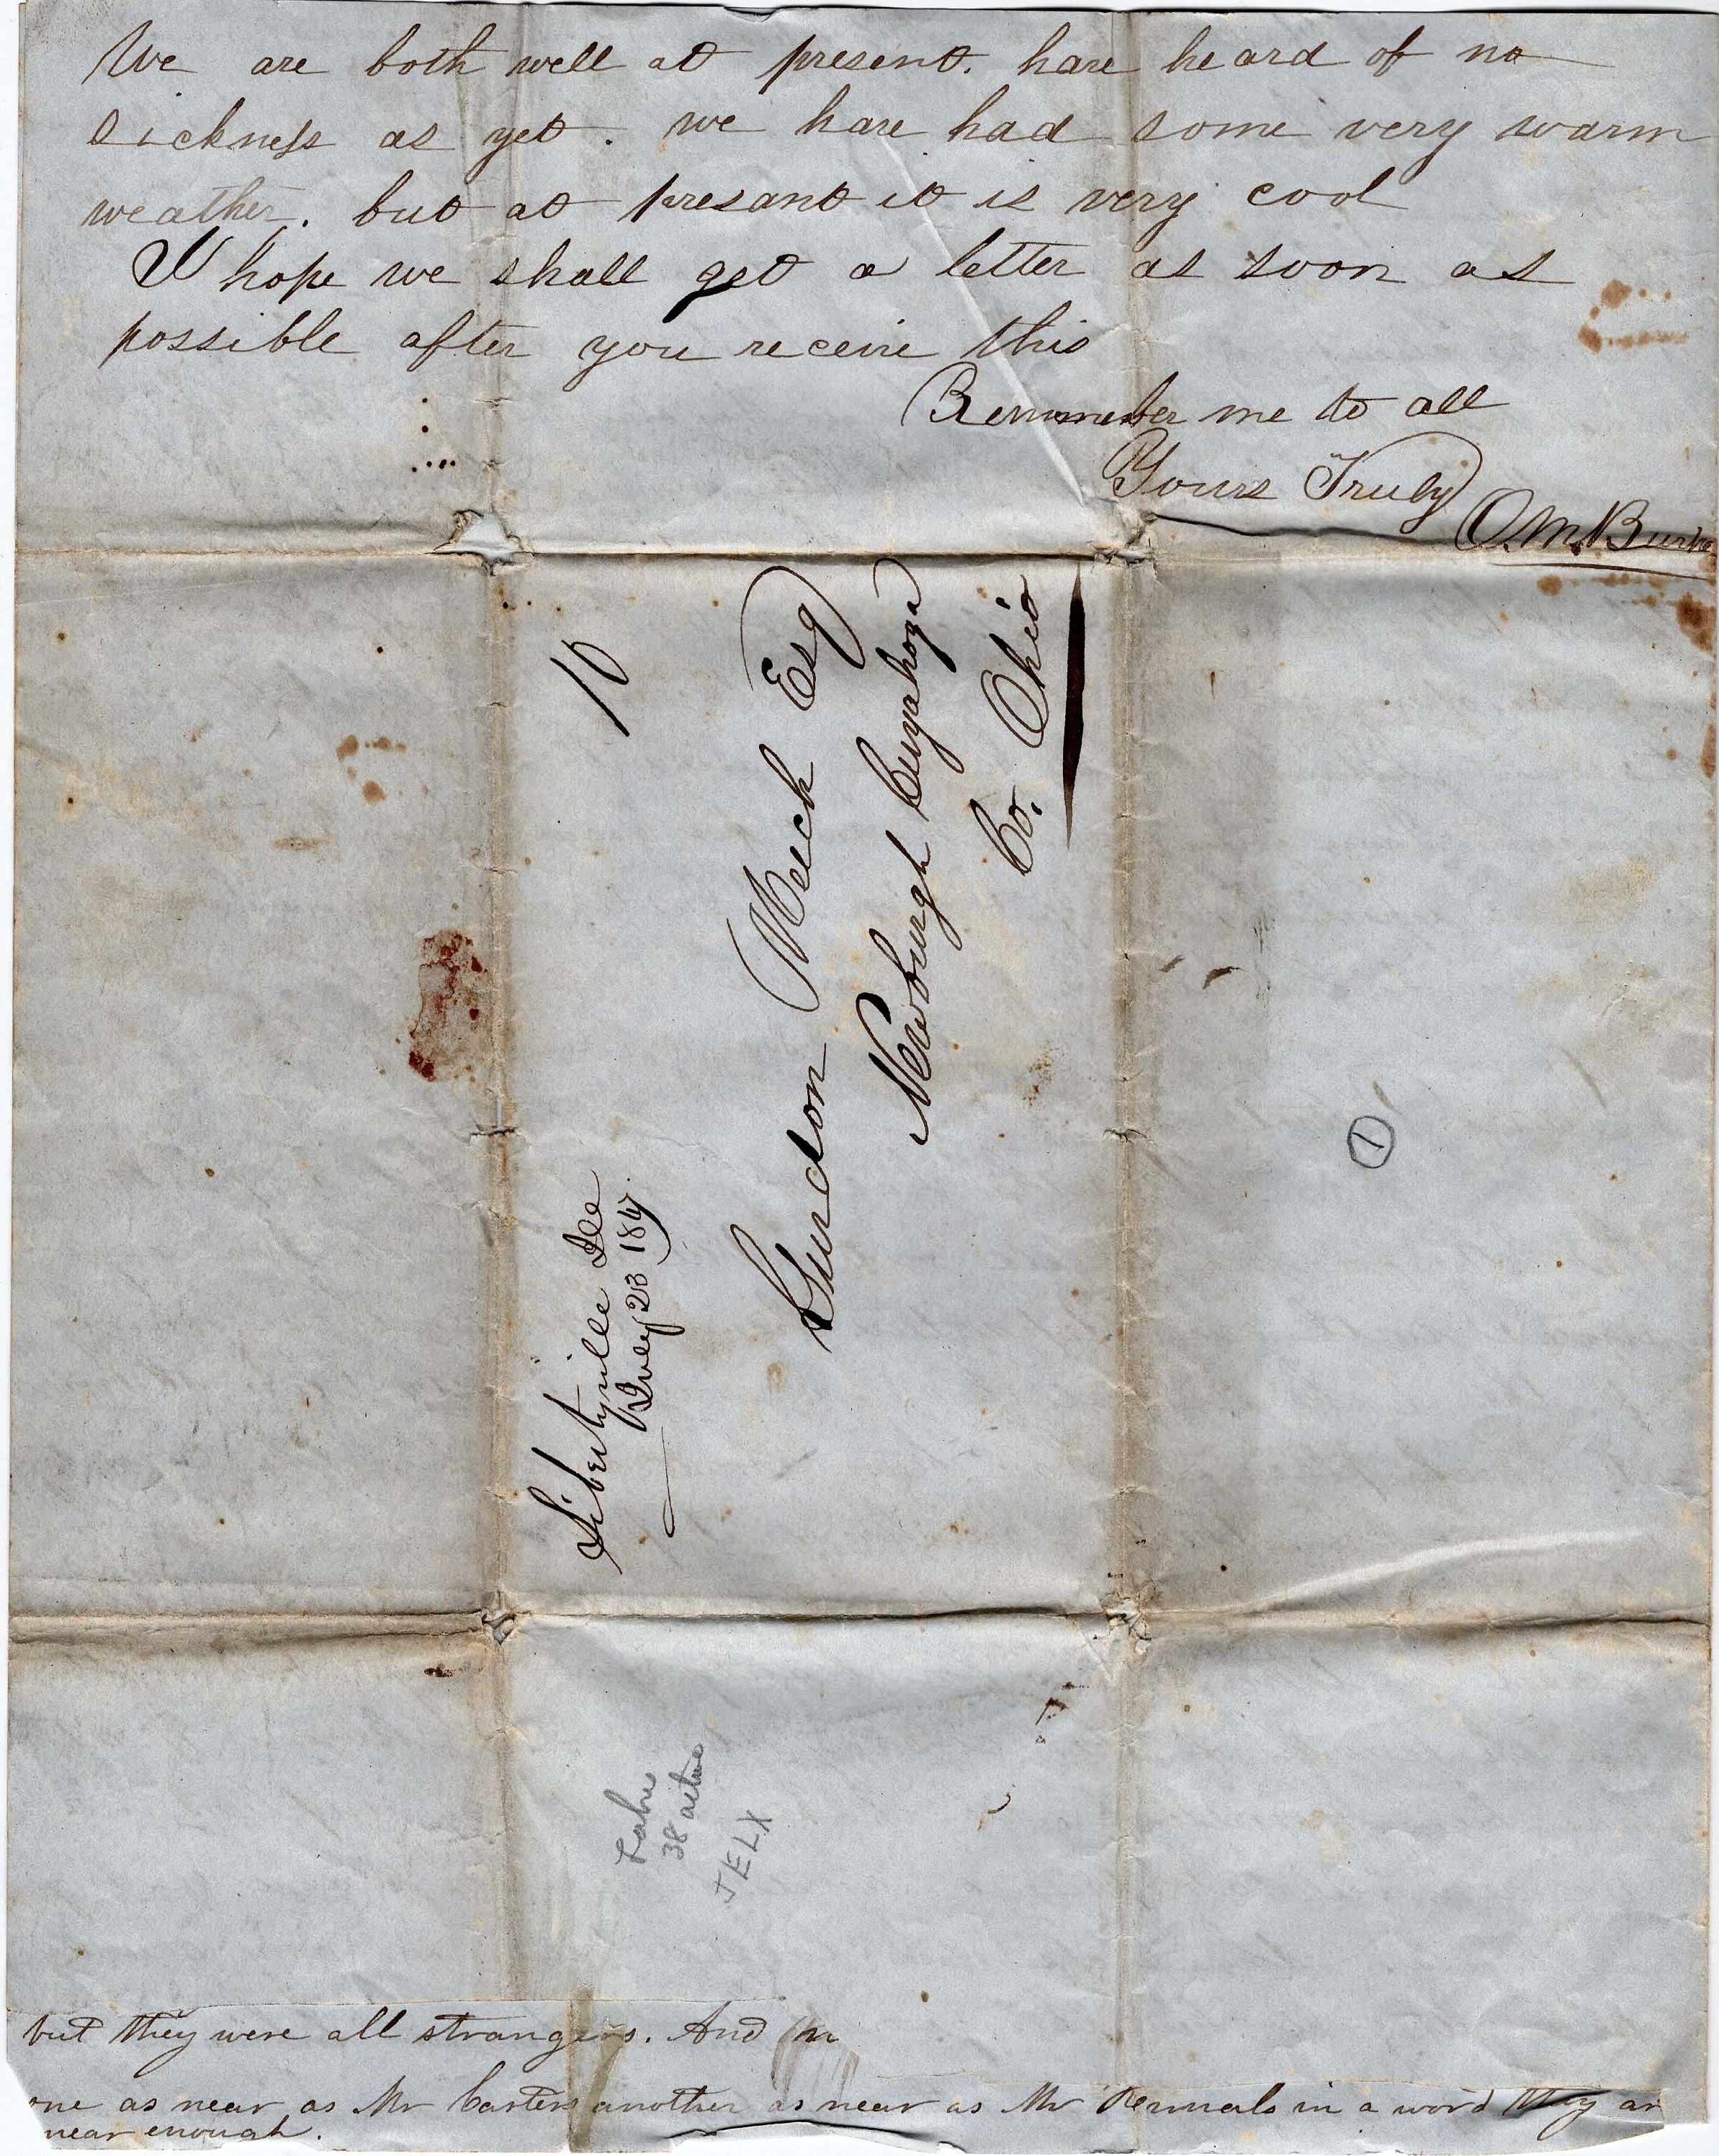 We are both well at present. have heard of no
sickness as yet. we have had some very warm
weather. but at presant it is very cool
I hope we shall get a letter as soon as
possible after you receive this
Remmember me to all
Yours Truly
O.M. Burke
10
Gurdon Meech Esq
Newburgh Cuyahoga
Co. Ohio
Libertyville Ill
July 23 1847
1
38
JELX
but they were all strangers. And
one as near as Mr Carters another as near as Mr in a word they ar
near enough.